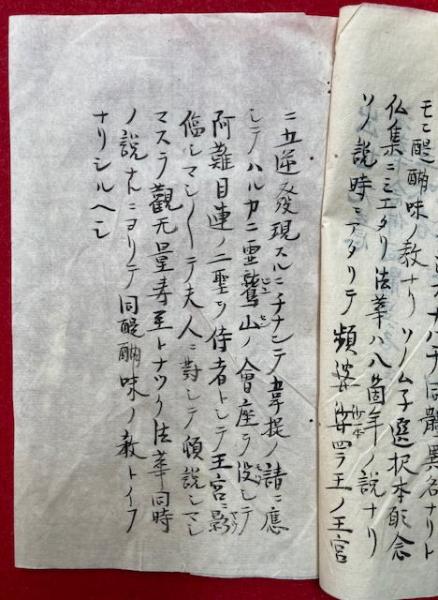 ナハチ同體異名ナリト
モニ醍醐味ノ教ナリ ソノム子選択本願念
仏集ニミエタリ 法華ハ八箇年ノ説ナリ
ソノ説時ニアタリテ 頻婆娑羅王ノ王宮
ニ五逆發現スルニチナンテ韋提ノ請ニ應
シテハルカニ霊鷲山ノ會座ヲ没シテ
阿難目連ノ二聖ヲ侍者トシテ王宮影
臨シマシ〱テ夫人ニ對シテ頓説シマシ
マスヲ觀无量寿トナツク法華同時
ノ説ナルニヨリテ同醍醐味ノ教トイフ
ナリシルヘシ